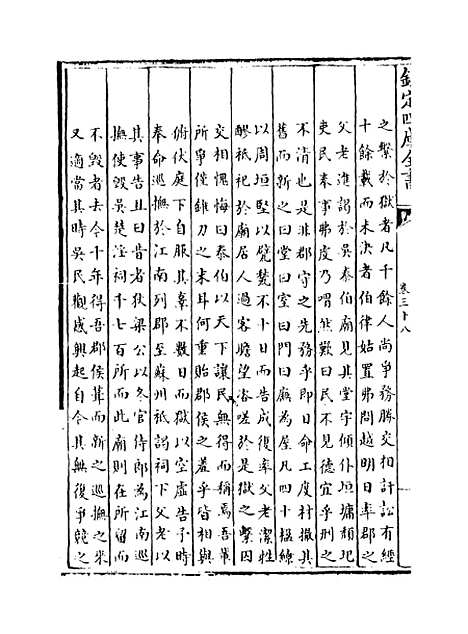 之繫於獄者凡千餘人尚爭務勝交相訐訟有經
十餘載而未決者伯律姑置弗問越明日率郡之
父老進謁於吳泰伯廟見其堂宇傾仆垣墉頽圮
吏民奉事弗虔乃喟然歎曰民不見德宜乎刑之
不清也是非郡守之先務乎即日命工度材撤其
舊而新之曰堂曰室曰門曰廡為屋凡四十楹繚
以周垣堅以甓甃不十日而告成復率父老潔牲
醪祇祀於廟居人過客瞻望咨嗟於是獄之繫囚
交相愧悔曰泰伯以天下讓民無得而稱焉吾輩
所爭僅錐刀之末耳何重貽郡侯之羞乎皆相與
俯伏庭下自服其辜不數日而獄以空虛告于時
奉命巡撫於江南列郡至蘇州祗謁祠下父老以
其事告且曰昔者狄梁公以冬官侍郎為江南巡
撫使毀吳楚淫祠千七百所而此廟則在所留而
不毀者去今千年得吾郡侯葺而新之巡撫之來
又適當其時吳民觀感興起自今其無復爭競之
欽定四庫全書
卷三十八